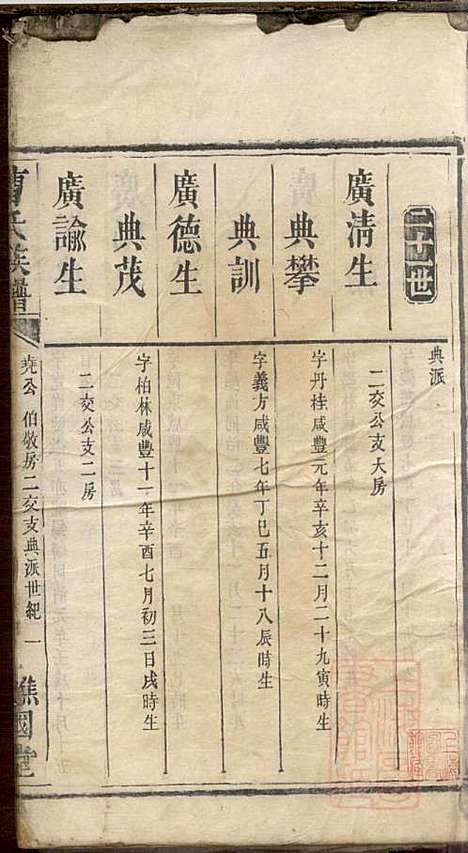 二十世
典派
廣清生
二交公支大房
典攀
字丹桂咸豐元年辛亥十二月二十九寅時生
典訓
字義方咸豐七年丁巳五月十八辰時生
廣德生
典茂
字柏林咸豐十一年辛酉七月初三日戌時生
廣諭生
二交公支二房
曹氏族譜
堯公 伯敬房二交支典派世紀 一
譙國堂